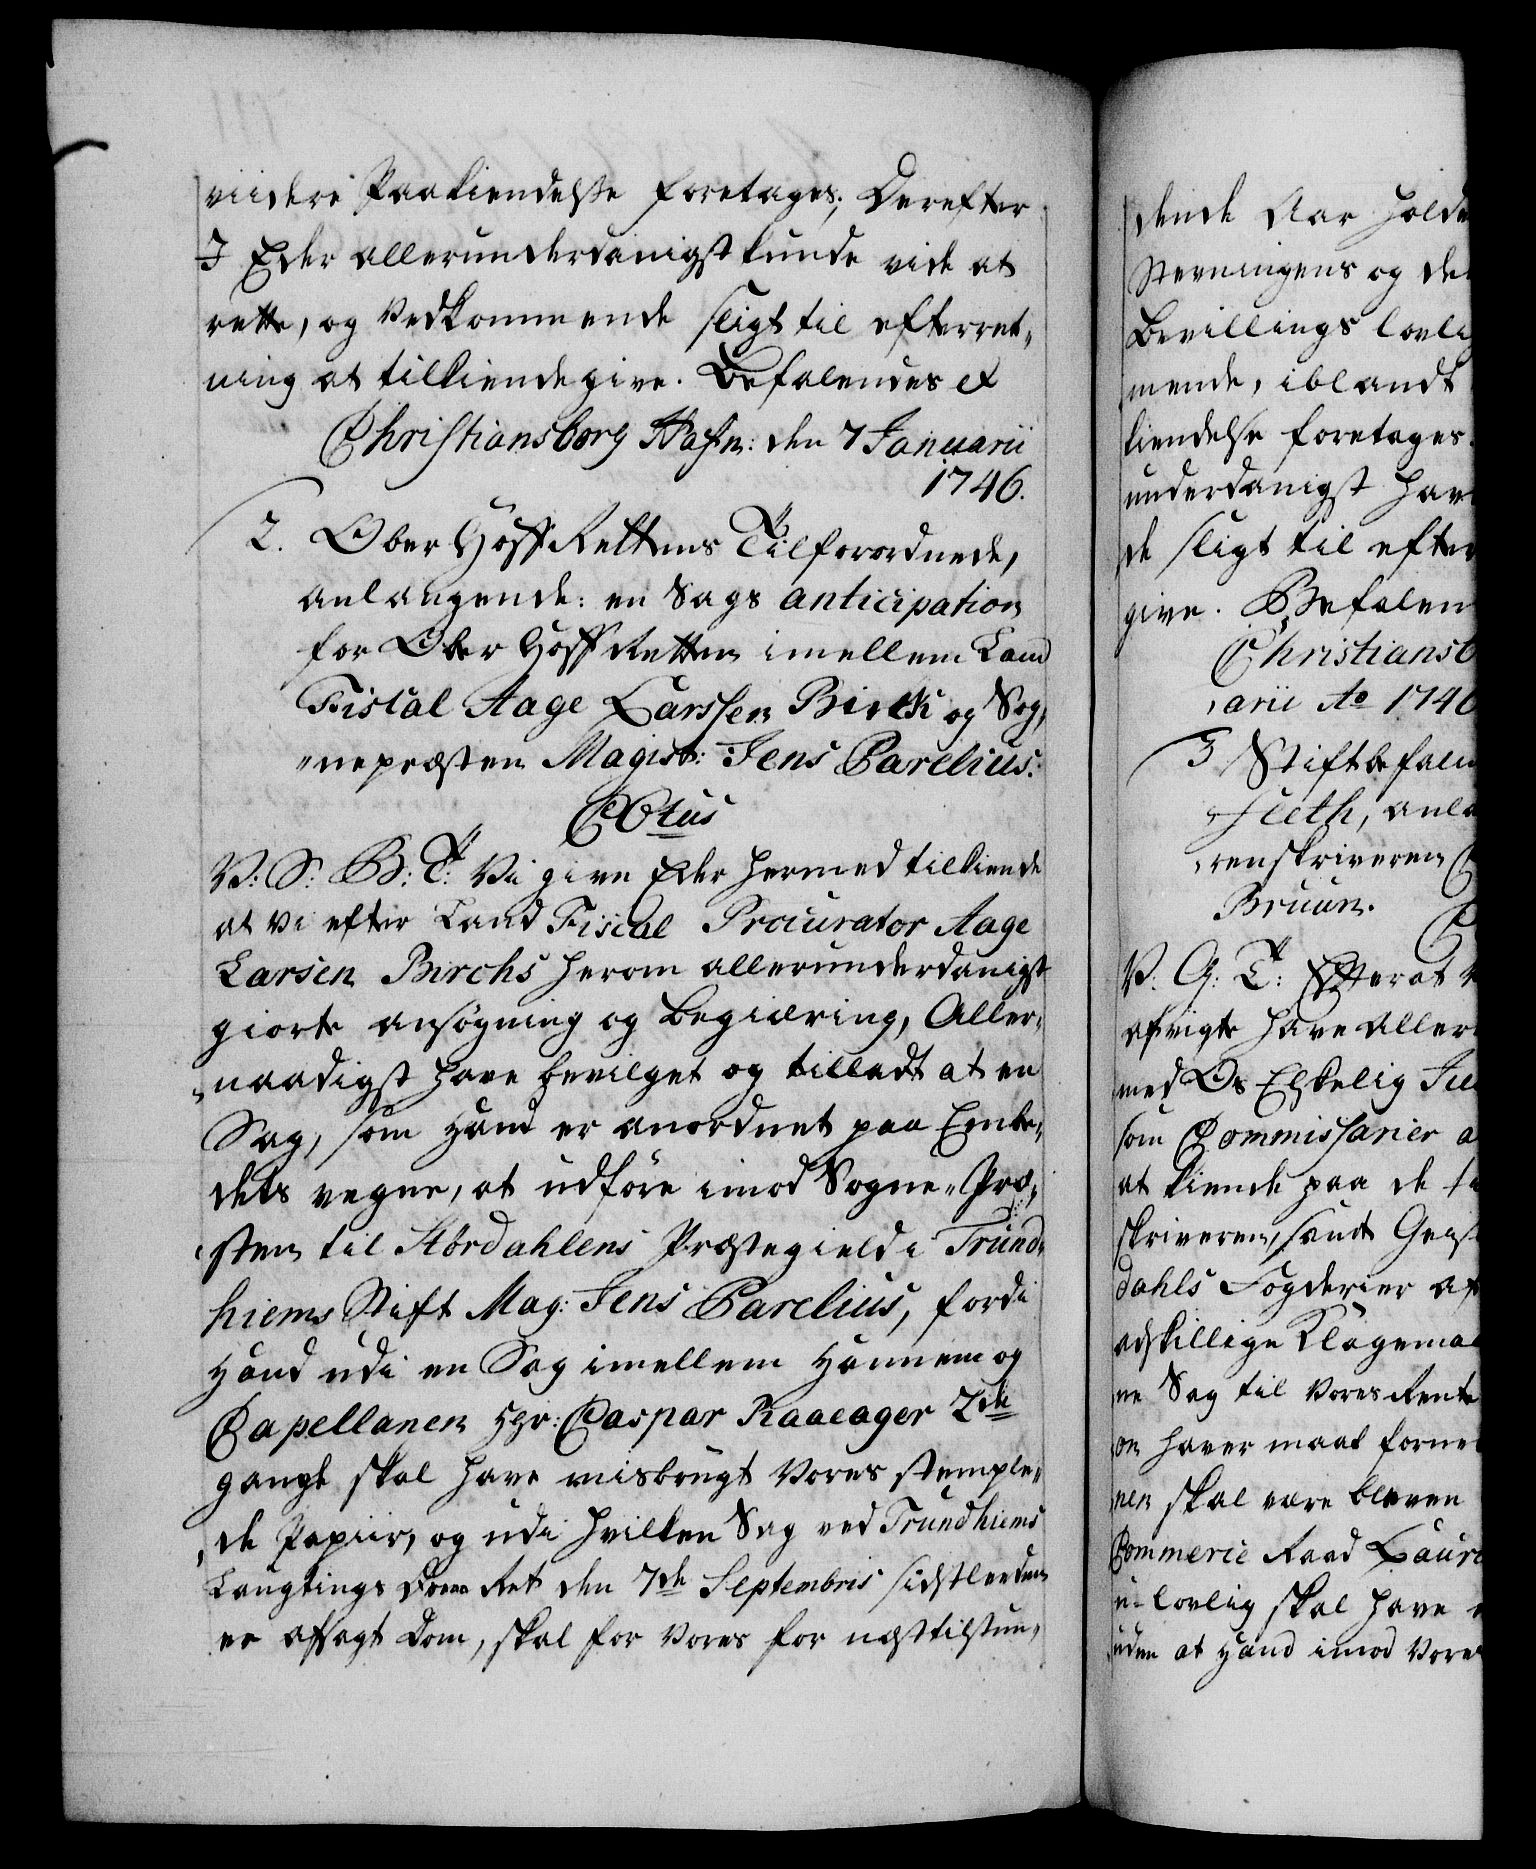 viidere Paakiendelsse foretages; Derefter
I Eder allerunderdanigst kunde vide at
rette, og Vedkommende sligt til efterret„
ning at tilkiendegive. Befalendes &
Christiansborg Hafn: den 7 Januarii
1746.
2. Ober Hoff Rettens Tilforordnede,
anlangende: en Sags anticipation
for Ober Hoff Retten imellem Land
Fiscal Aage Larssen Birck og Sog„
„nepræsten Magist: Jens Parelius.
C 6tus
V: S: B: T: Vi give Eder hermed tilkiende
at Vi efter Land Fiscal Procurator Aage
Larsen Birchs herom allerunderdanigst
giorte ansøgning og begiæring, Aller„
„naadigst have bevilget og tilladt at en
Sag, som Hand er anordnet paa Embe„
dets vegne, at udføre imod Sogne„Præ„
„sten til Stördahlens Præstegield i Trund„
hiems Stift Mag: Jens Parelius, fordi
Hand udi en Sag imellem Hannem og
Capellanen Hr: Caspar Raaeager 2de
gange skal have misbrugt Vores stemple„
„de Papiir, og udi hvilken Sag ved Trundhiems
Laugtings Dom Ret den 7de Septembris sidstleeden
er afsagt Dom, skal for Vores for næsttilstun„
dende Aar holde
Stevningens og de
Bevillings lovli
mende, iblandt
kiendelse foretages.
underdanigst hav
de sligt til efter
give. Befalen
Christiansb
„arii Ao 1746
3 Stiftbefalin
fleth, anla
„renskriveren
Bruun.
V. G: T: Efterat V
afvigte have Aller
med Os Elskelig Ju
som Commissarier a
at kiende paa de
skriveren, samt
dahls Fogderier af
adskillige Klagemaa
ne Sag til Vores Rente
on haver maat forne
nen skal være bleven
Commerce Raad Laur
u-lovlig skal have
uden at Hand imod Vore